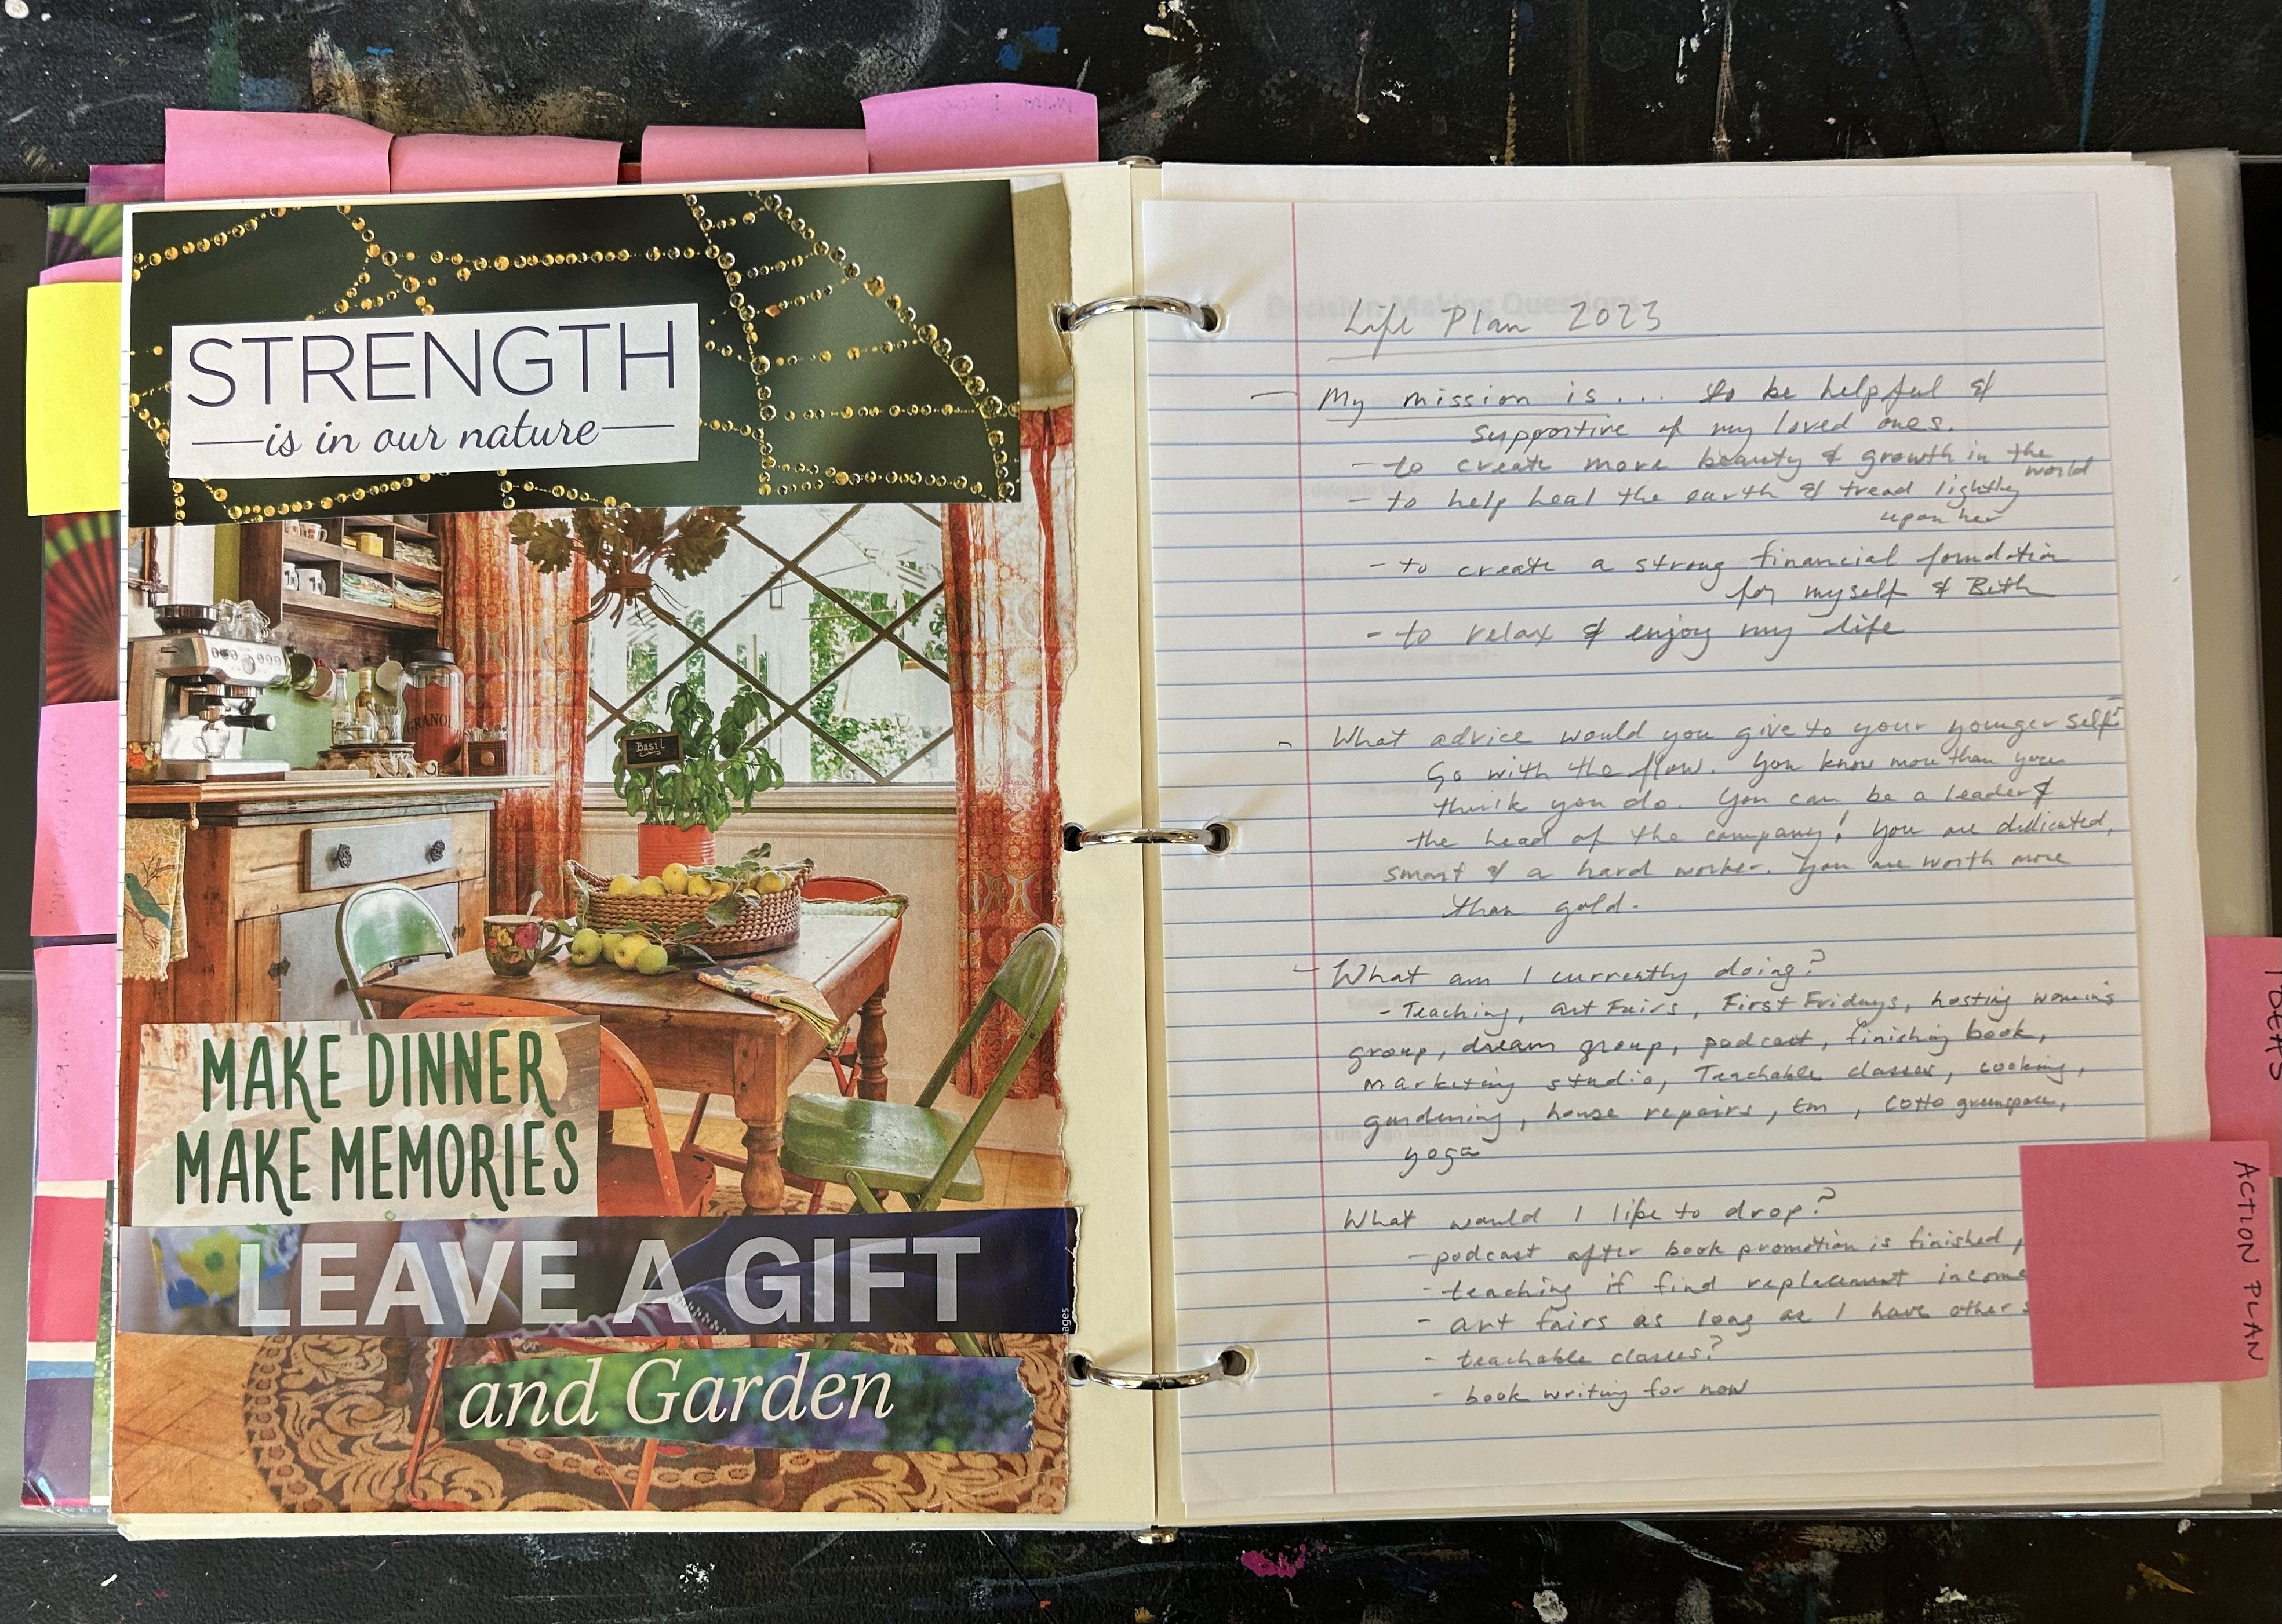 STRENGTH
is in our nature
GRANOL
Basil
MAKE DINNER
MAKE MEMORIES
LEAVE A GIFT
and Garden
Decision Making Questions
Life Plan 2023
— My mission is... to be helpful &
supportive of my loved ones.
- to create more beauty & growth in the
world
- to help heal the earth & tread lightly
upon her
- to create a strong financial foundation
for myself & Beth
- to relax & enjoy my life
- What advice would you give to your younger self?
Go with the flow. You know more than you
think you do. You can be a leader &
the head of the company! You are dedicated,
smart & a hard worker. You are worth more
than gold.
- What am I currently doing?
- Teaching, art Fairs, First Fridays, hosting women's
group, dream group, podcast, finishing book,
marketing studio, Teachable classes, cooking,
gardening, house repairs, Em, Cotto greenspace,
yoga
What would I like to drop?
- podcast after book promotion is finished,
- teaching if find replacement income
- art fairs as long as I have other s
- teachable classes?
- book writing for now
IDEAS
ACTION PLAN